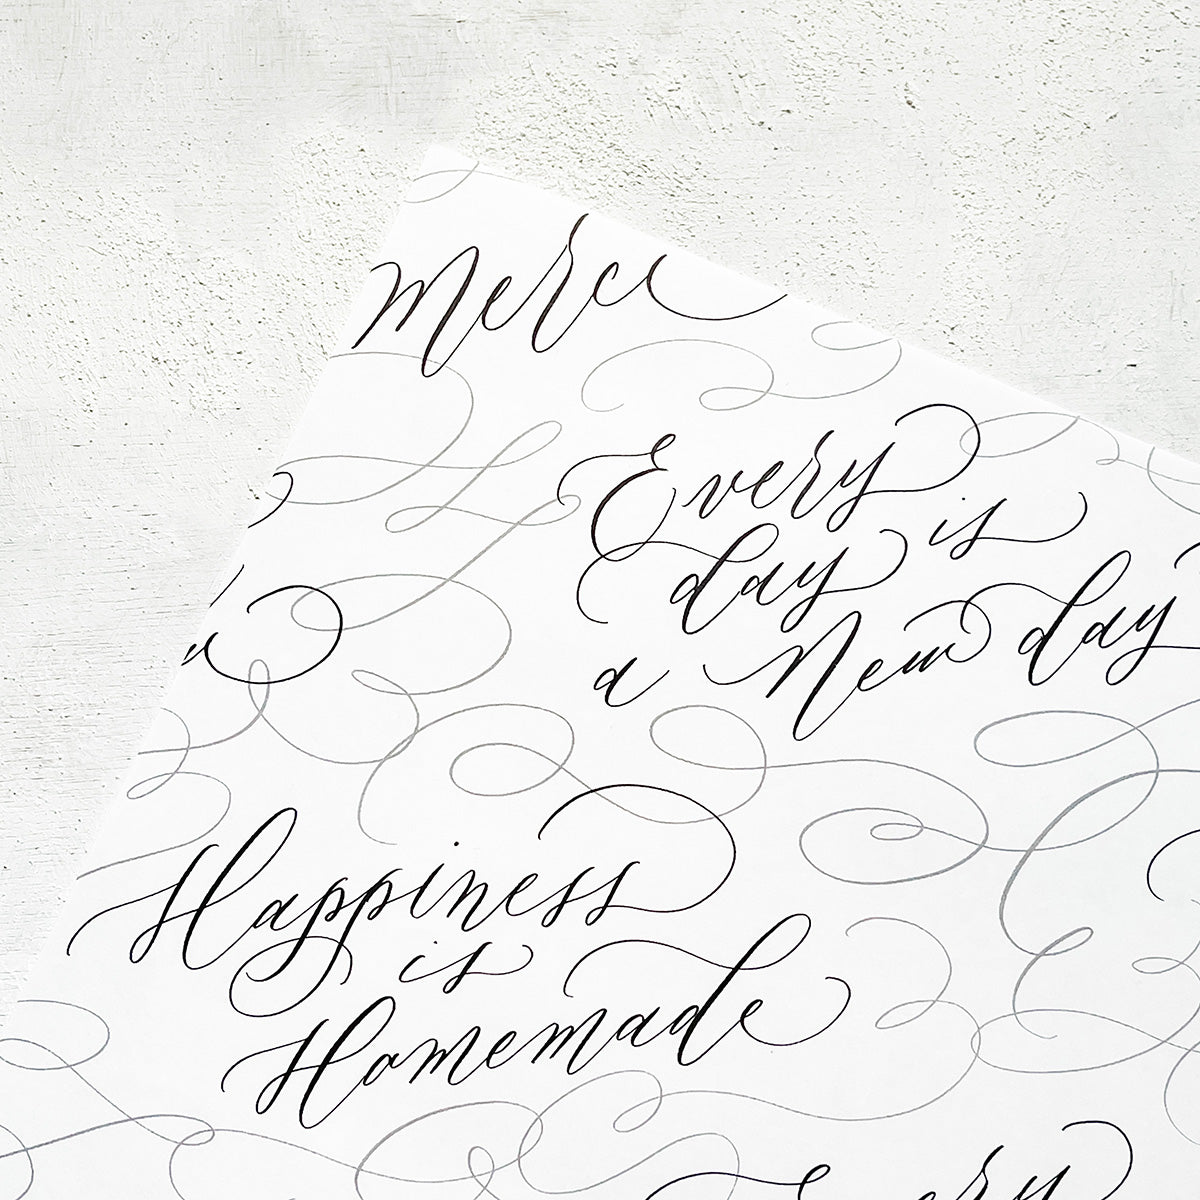 Merci
Every
day is
a New day
Happiness
is
Homemade